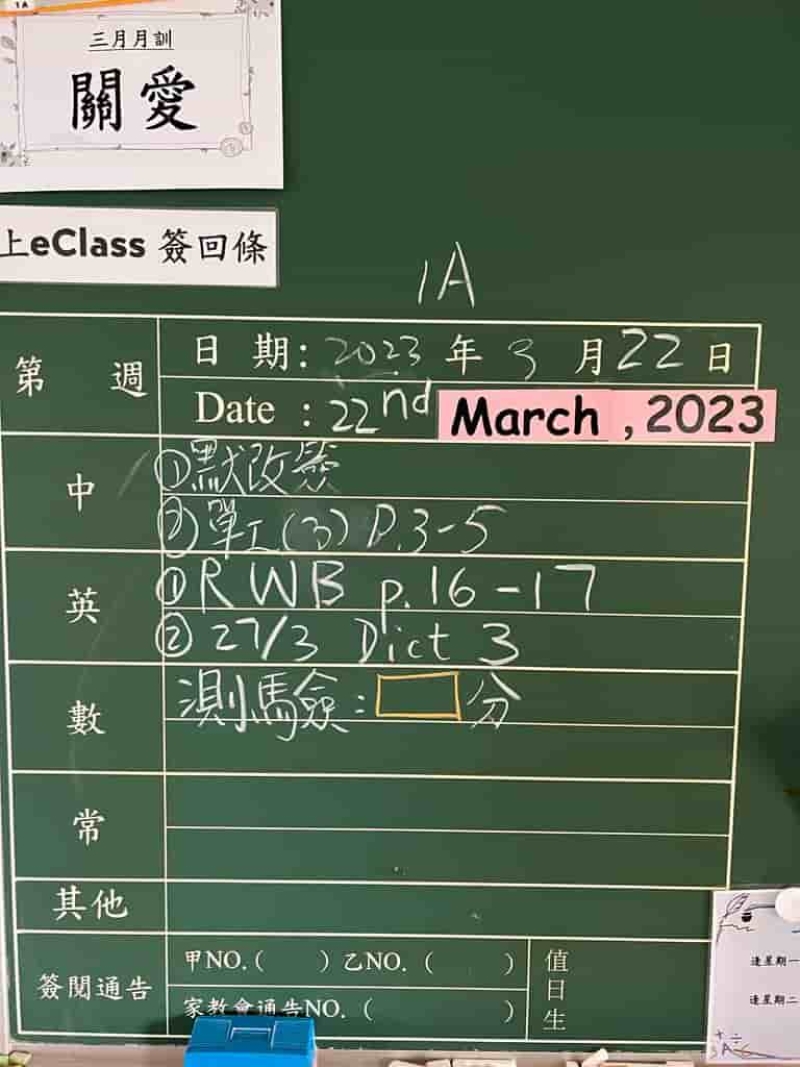 1A
三月月訓
關愛
上eClass 簽回條
1A
第 週
日 期: 2023 年 3 月 22 日
Date : 22nd March , 2023
中
①默改簽
②單工(3) P.3-5
英
①RWB p.16-17
② 27/3 Dict 3
數
測驗: 分
常
其他
簽閱通告
甲NO.( ) 乙NO. ( )
家教會通告NO. ( )
值日生
逢星期一
逢星期二